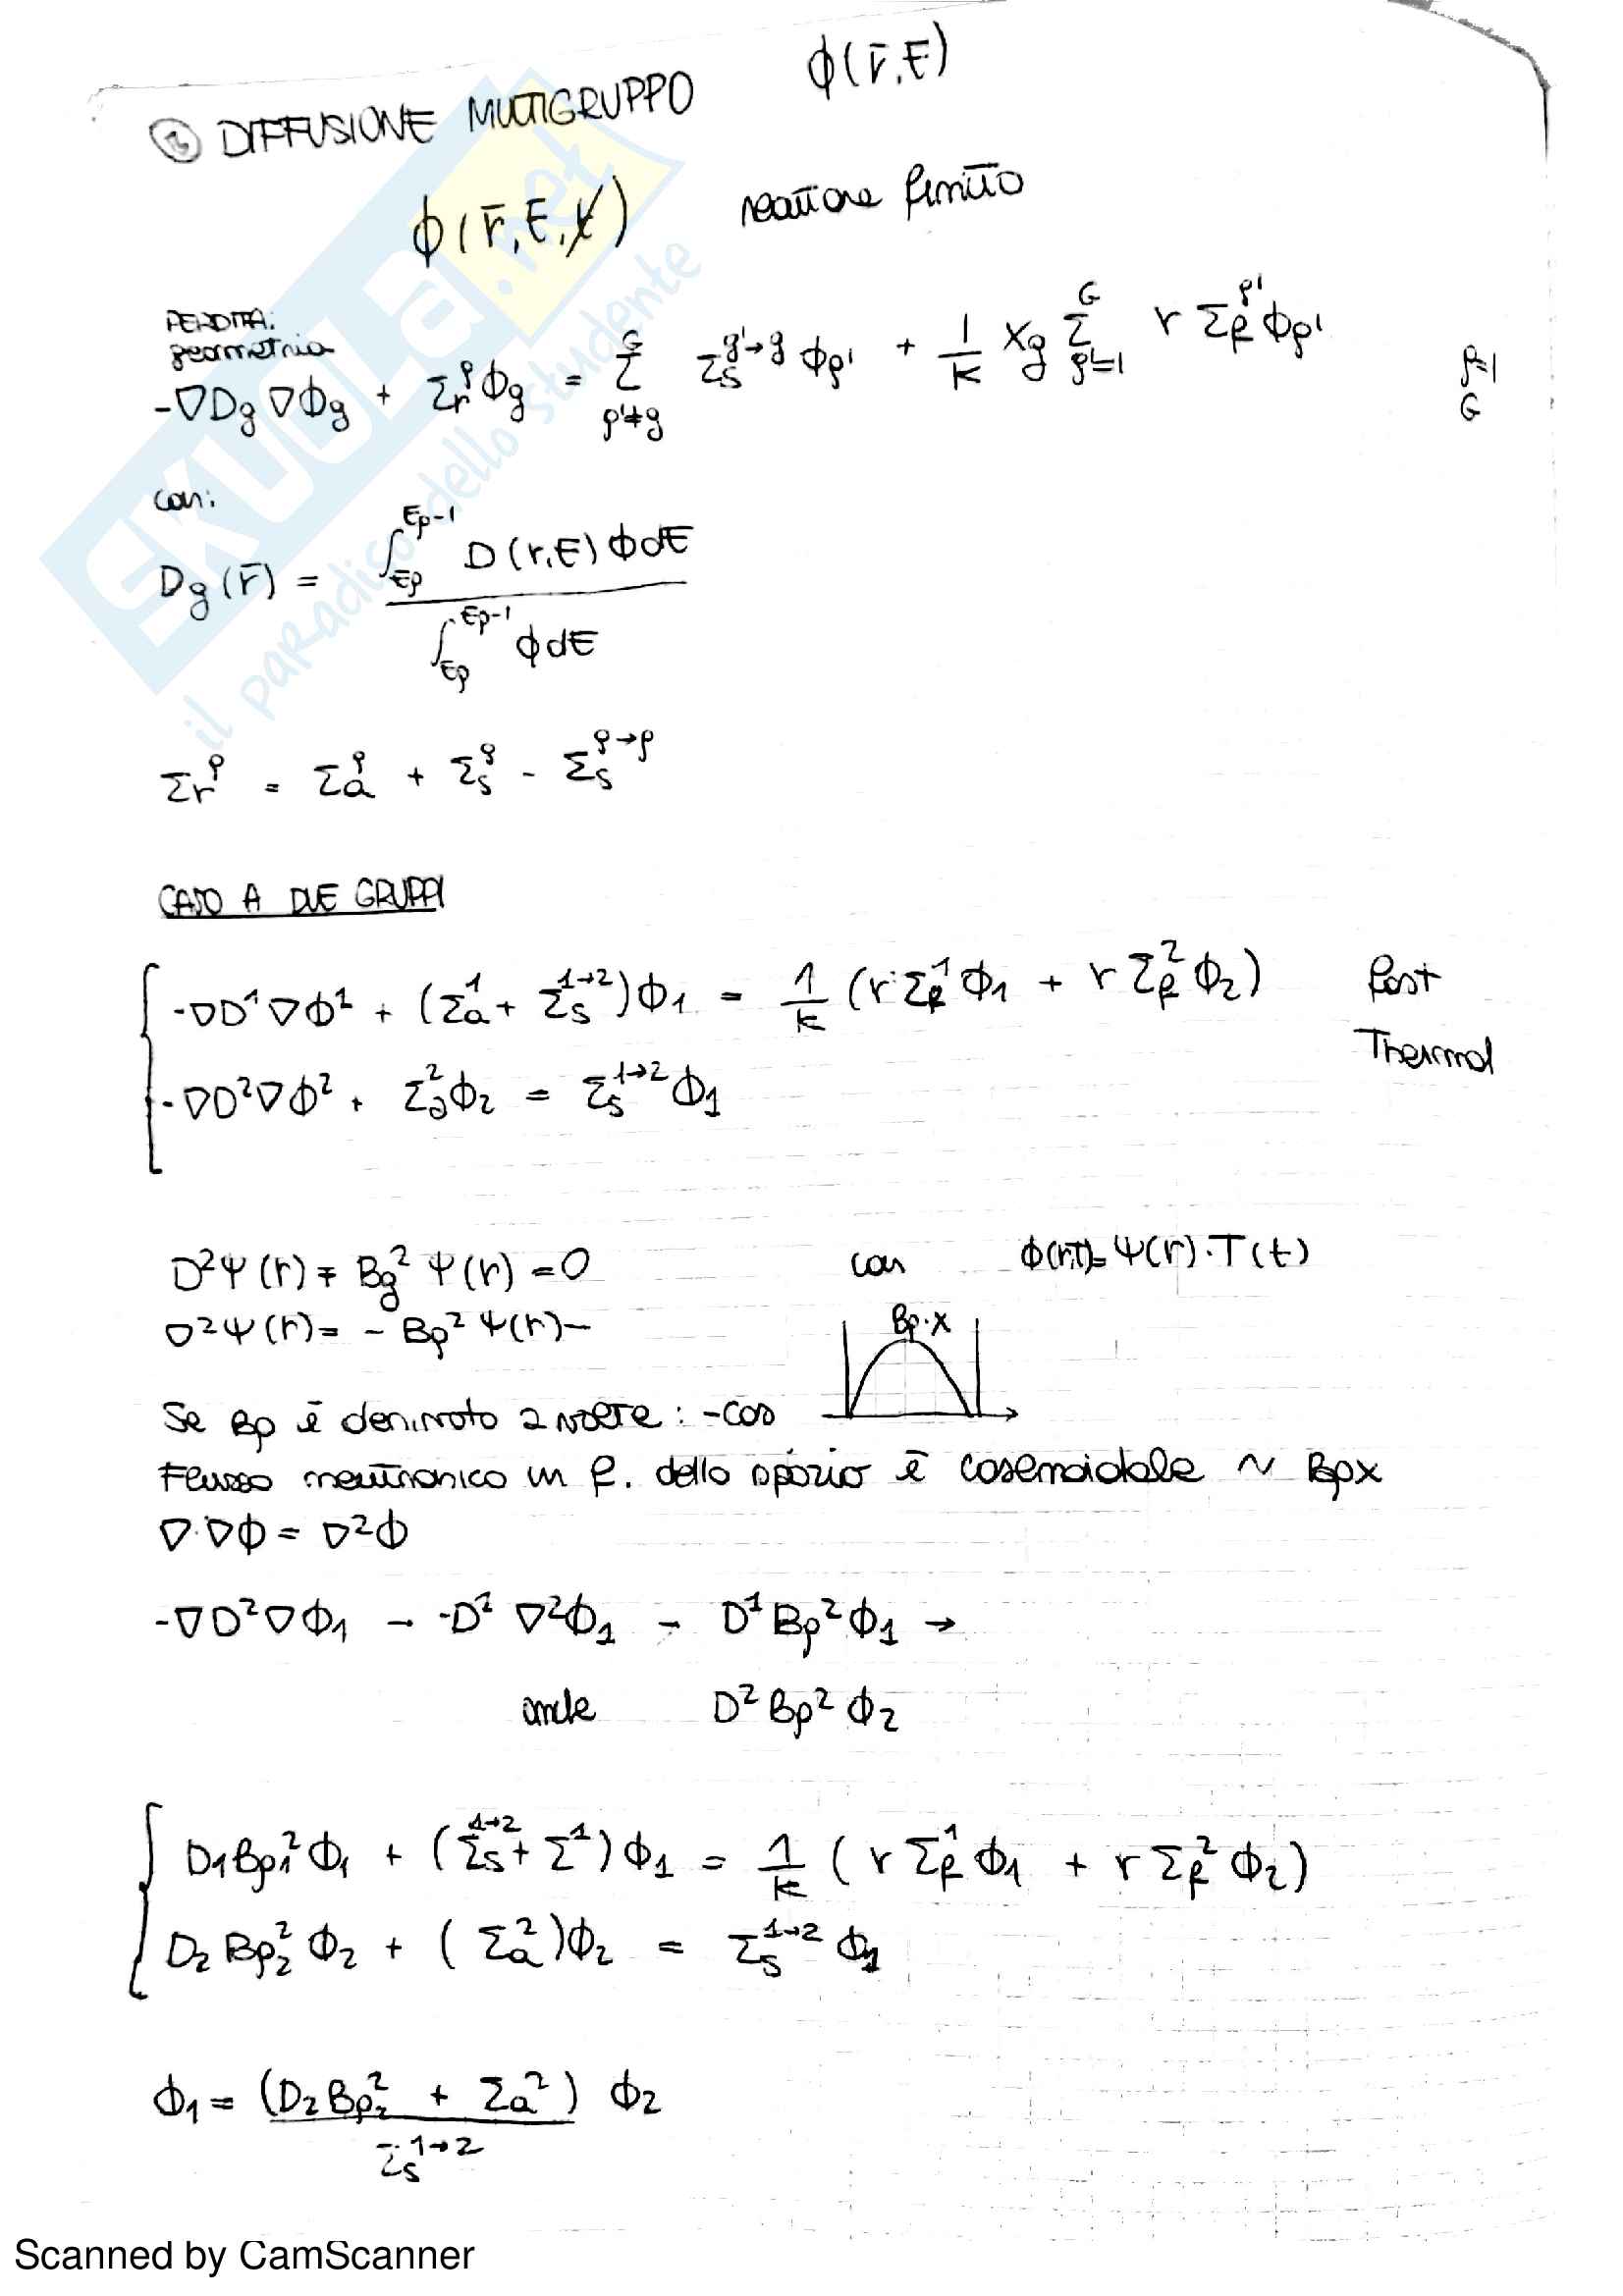 ② DIFFUSIONE MULTIGRUPPO ϕ(r̄,E)
ϕ(r̄,E,t) reattore finito
PERDITA:
geometria
-∇Dg∇ϕg + Σr^g ϕg = Σ_{g'≠g}^G Σs^{g'→g} ϕg' + 1/K χg Σ_{g'=1}^G ν Σf^{g'} ϕg' g=1 G
con:
Dg(r̄) = ∫_{Eg}^{Eg-1} D(r,E) ϕdE / ∫_{Eg}^{Eg-1} ϕdE
Σr^g = Σa^g + Σs^g - Σs^{g→g}
CASO A DUE GRUPPI
-∇D¹∇ϕ¹ + (Σa¹ + Σs^{1→2})ϕ1 = 1/k (νΣf¹ϕ1 + νΣf²ϕ2) Fast
-∇D²∇ϕ² + Σa²ϕ2 = Σs^{1→2}ϕ1 Thermal
D²Ψ(r) + Bg²Ψ(r) = 0 con ϕ(r,t)=Ψ(r)·T(t)
∇²Ψ(r) = - Bg²Ψ(r)-
Bg·x
Se Bg è derivato 2 volte: -cos
Flusso neutronico in f. dello spazio è cosenoidale ~ Bgx
∇·∇ϕ = ∇²ϕ
-∇D²∇ϕ1 - -D¹ ∇²ϕ1 - D¹Bg²ϕ1 →
anche D²Bg²ϕ2
D1Bg1²ϕ1 + (Σs^{1→2} + Σ¹)ϕ1 = 1/k (νΣf¹ϕ1 + νΣf²ϕ2)
D2Bg2²ϕ2 + (Σa²)ϕ2 = Σs^{1→2} ϕ1
ϕ1 = (D2Bg2² + Σa²) / Σs^{1→2} ϕ2
SKUOLA.net
il paradiso dello studente
Scanned by CamScanner